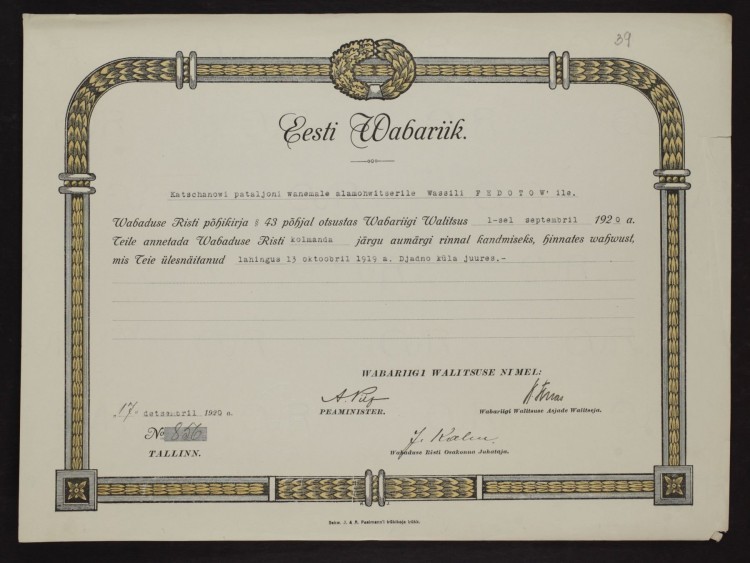 39
Eesti Wabariik.
Katschanowi pataljoni wanemale alamohwitserile Wassili FEDOTOW'ile.
Wabaduse Risti põhikirja § 43 põhjal otsustas Wabariigi Walitsus 1-sel septembril 1920 a.
Teile annetada Wabaduse Risti kolmanda järgu aumärgi rinnal kandmiseks, hinnates wahwust,
mis Teie ülesnäitanud lahingus 13 oktoobril 1919 a. Djadno küla juures.-
WABARIIGI WALITSUSE NIMEL:
PEAMINISTER.
Wabariigi Walitsuse Asjade Walitseja.
17. detsembril 1920 a.
No 856
TALLINN.
Wabaduse Risti Osakonna Juhataja.